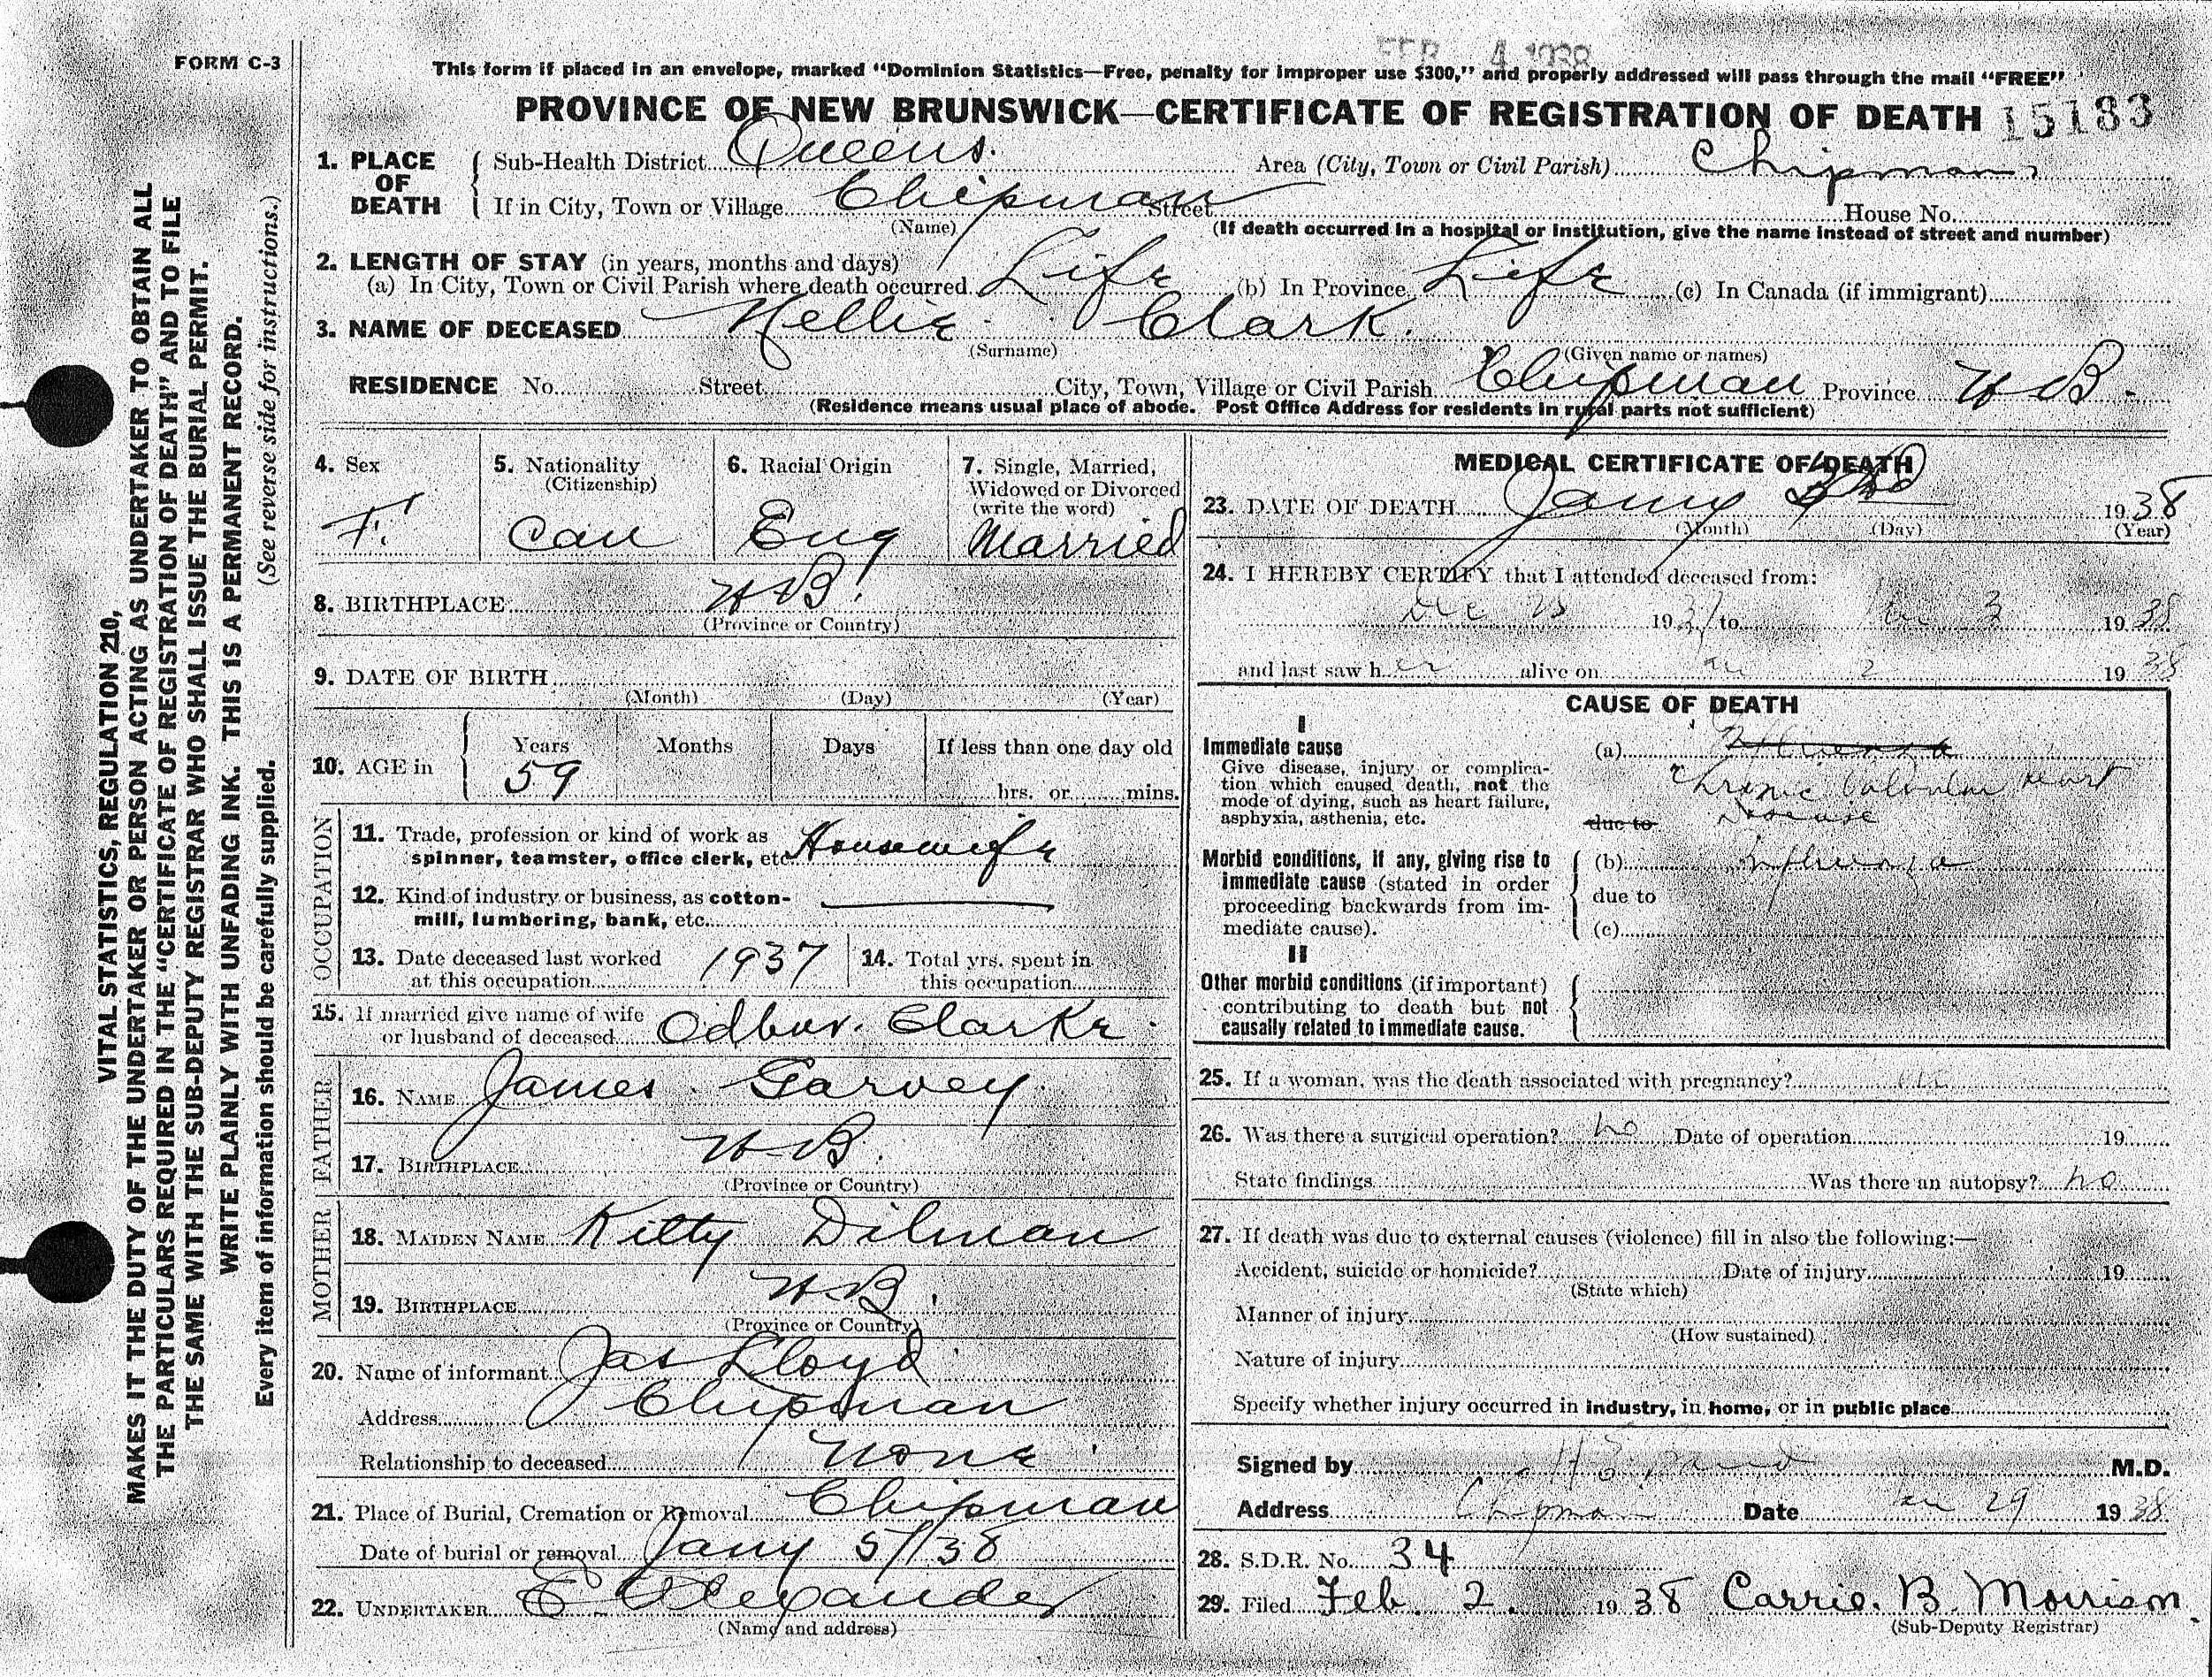 FEB 4 1938
FORM C-3
This form if placed in an envelope, marked "Dominion Statistics—Free, penalty for improper use $300," and properly addressed will pass through the mail "FREE"
PROVINCE OF NEW BRUNSWICK—CERTIFICATE OF REGISTRATION OF DEATH 15183
1. PLACE OF DEATH { Sub-Health District Queens. Area (City, Town or Civil Parish) Chipman
If in City, Town or Village Chipman Street House No.
(Name) (If death occurred in a hospital or institution, give the name instead of street and number)
2. LENGTH OF STAY (in years, months and days)
(a) In City, Town or Civil Parish where death occurred Life (b) In Province Life (c) In Canada (if immigrant)
3. NAME OF DECEASED Nellie Clark.
(Surname) (Given name or names)
RESIDENCE No. Street City, Town, Village or Civil Parish Chipman Province N B.
(Residence means usual place of abode. Post Office Address for residents in rural parts not sufficient)
VITAL STATISTICS, REGULATION 210,
MAKES IT THE DUTY OF THE UNDERTAKER OR PERSON ACTING AS UNDERTAKER TO OBTAIN ALL
THE PARTICULARS REQUIRED IN THE "CERTIFICATE OF REGISTRATION OF DEATH" AND TO FILE
THE SAME WITH THE SUB-DEPUTY REGISTRAR WHO SHALL ISSUE THE BURIAL PERMIT.
WRITE PLAINLY WITH UNFADING INK. THIS IS A PERMANENT RECORD.
Every item of information should be carefully supplied. (See reverse side for instructions.)
4. Sex F.
5. Nationality (Citizenship) Can
6. Racial Origin Eng
7. Single, Married, Widowed or Divorced (write the word) Married
8. BIRTHPLACE N B.
(Province or Country)
9. DATE OF BIRTH
(Month) (Day) (Year)
10. AGE in { Years Months Days If less than one day old
59 hrs. or mins.
OCCUPATION
11. Trade, profession or kind of work as
spinner, teamster, office clerk, etc. Housewife
12. Kind of industry or business, as cotton-
mill, lumbering, bank, etc.
13. Date deceased last worked
at this occupation 1937
14. Total yrs. spent in
this occupation
15. If married give name of wife
or husband of deceased Odbur. Clarke
FATHER
16. NAME James Garvey
17. BIRTHPLACE N B.
(Province or Country)
MOTHER
18. MAIDEN NAME Kitty Dilman
19. BIRTHPLACE N B.
(Province or Country)
20. Name of informant Jas Lloyd
Address Chipman
Relationship to deceased None
21. Place of Burial, Cremation or Removal Chipman
Date of burial or removal Jany 5/38
22. UNDERTAKER E Alexander
(Name and address)
MEDICAL CERTIFICATE OF DEATH
23. DATE OF DEATH Jany 1938
(Month) (Day) (Year)
24. I HEREBY CERTIFY that I attended deceased from:
Dec 193 to 3 1938
and last saw her alive on 2 1938
CAUSE OF DEATH
I
Immediate cause
Give disease, injury or complica-
tion which caused death, not the
mode of dying, such as heart failure,
asphyxia, asthenia, etc.
(a) Chronic Valvular Heart
due to Disease
Morbid conditions, if any, giving rise to
immediate cause (stated in order
proceeding backwards from im-
mediate cause).
(b) Influenza
due to
(c)
II
Other morbid conditions (if important)
contributing to death but not
causally related to immediate cause.
25. If a woman, was the death associated with pregnancy?
26. Was there a surgical operation? no Date of operation 19
State findings Was there an autopsy? no
27. If death was due to external causes (violence) fill in also the following:—
Accident, suicide or homicide? Date of injury 19
(State which)
Manner of injury
(How sustained)
Nature of injury
Specify whether injury occurred in industry, in home, or in public place
Signed by M.D.
Address Chipman Date Jan 29 1938
28. S.D.R. No. 34
29. Filed Feb. 2. 1938 Carrie. B. Morrison.
(Sub-Deputy Registrar)